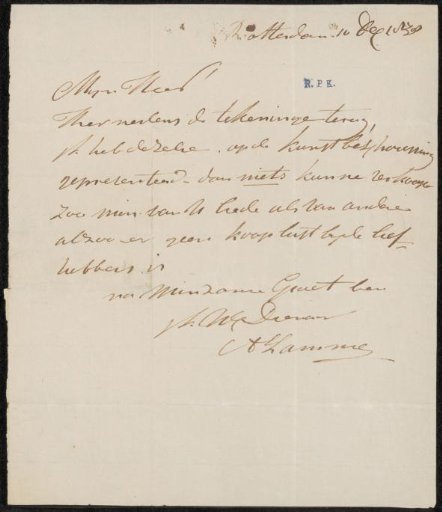 Rotterdam 10 Dec 1838
R.P.K.
Mijn Heer
Hier nevens de tekeninge terug
ik heb dezelve op de kunstbeschouwing
gepresenteerd dan niets kunne verkoope
zoo min van U liede als van andere
alzoo er geen kooplust bij de lief-
hebbers is
na Minzame Groet ben
ik UE Dienaar
A Lamme